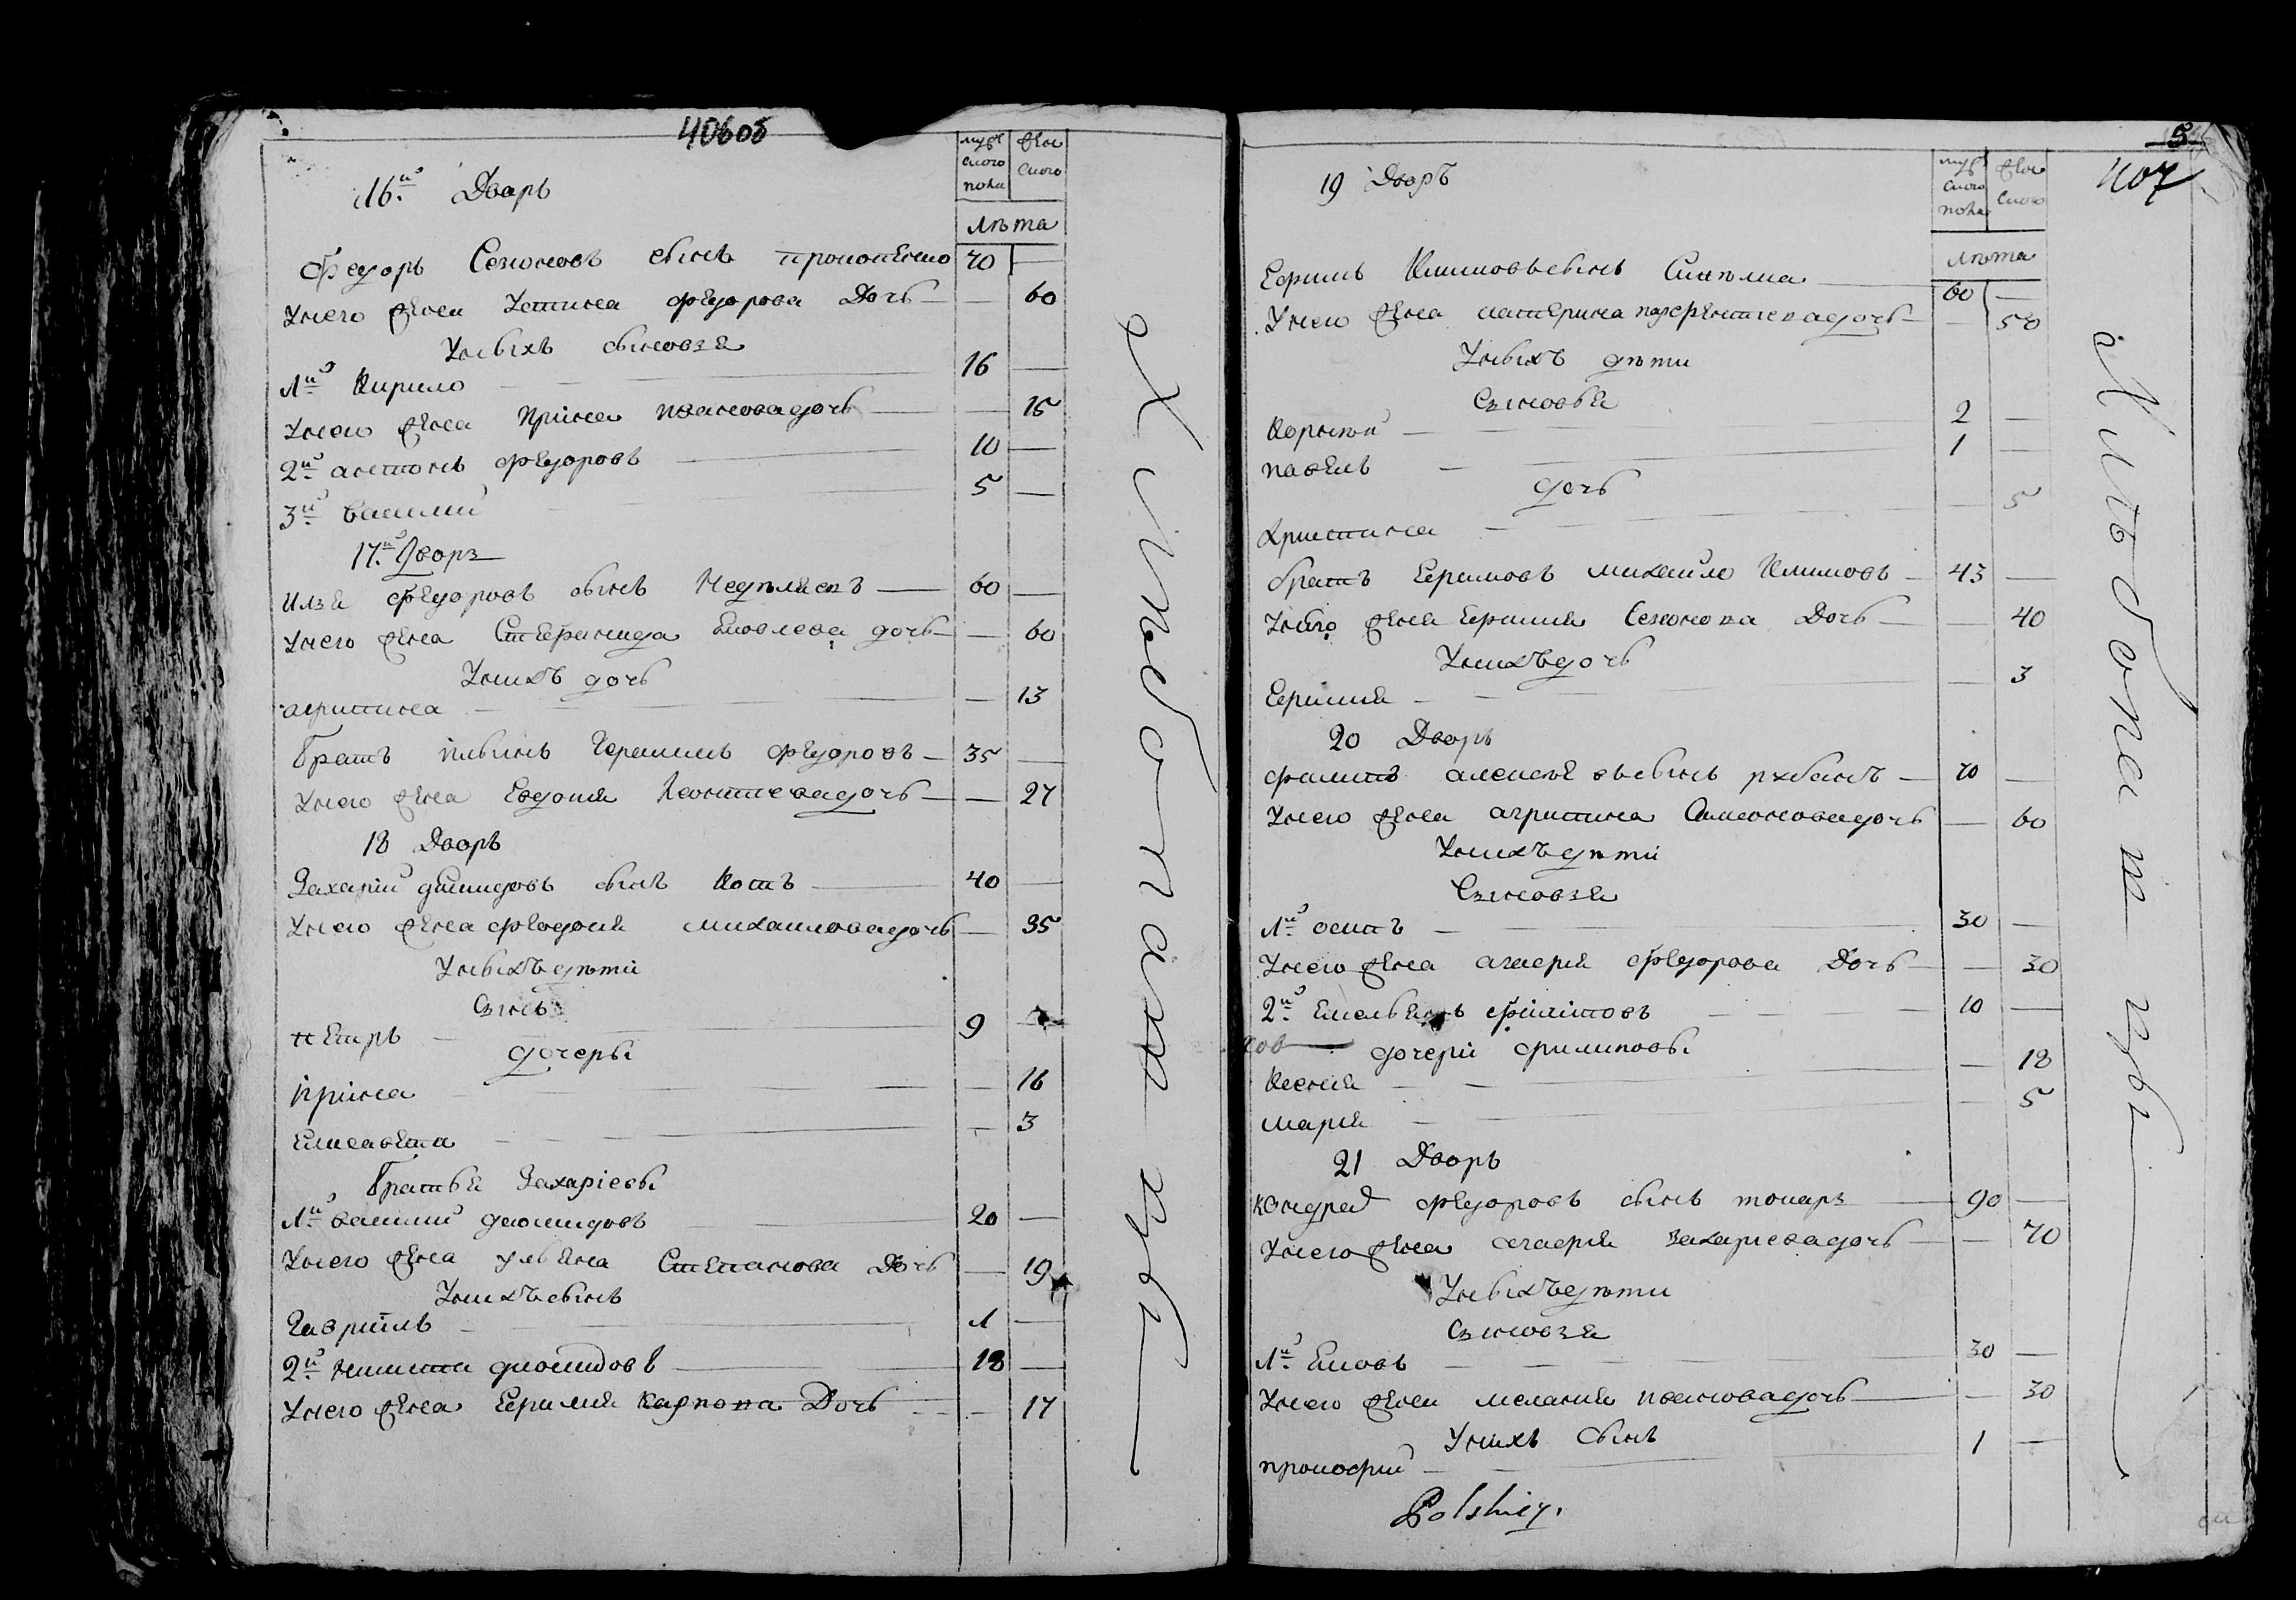 406об
муже
ского
пола
жен
ского
лѣта
16й Дворъ
Федоръ Семоновъ сынъ прокопенко 70 —
Унего жена Устина федорова Дочь — 60
Уныхъ сыновя
1й Кирило 16 —
Унего жена Ирина ивановадочь — 15
2й антонъ федоровъ 10 —
3й василий 5 —
17й Дворъ
Илья федоровъ сынъ 60 —
Унего жена Стефанида Яковлева дочь — 60
Унихъ дочь
агрипина — 13
Братъ Герасимъ федоровъ 35 —
Унего жена Евдокия Леонтиевадочь — 27
18 Дворъ
Захарій сынъ Котъ 40 —
Унего жена феодосия михаиловадочь — 35
Уныхъдѣти
Сынъ
петръ 9 —
дочеры
Ирина — 16
Елисавета — 3
Братья Захаріевы
1й василий диомидовъ 20 —
Унего жена ульяна Степанова Дочь — 19
Унихъсынъ
Гавриилъ 1 —
2й никита диомидовъ 18 —
Унего жена Ефимия Карпова Дочь — 17
5
407
муж
ского
пола
жен
ского
лѣта
19 Дворъ
Ефимъ Климовьсынъ 60 —
Унего жена катерина дочь — 50
Уныхъ дѣти
Сыновья
Корнѣй 2 —
павелъ 1 —
дочь
Христина — 5
братъ Ефимовъ михайло Климовъ 43 —
жена Ефимия Семонова Дочь — 40
Унихъдочь
Ефимия — 3
20 Дворъ
филипъ алексѣевъсынъ рубанъ 70 —
Унего жена агрипина Симоновадочь — 60
Унихъдѣти
Сыновя
1й осипъ 30 —
Унего жена агафия федорова Дочь — 30
2й Емельянъ филиповъ 10 —
дочери филиповы
Ксения — 18
мария — 5
21 Дворъ
Кондрад федоровъ сынъ токаръ 90 —
Унего жена агафия захариевадочь — 70
Уныхъдѣти
Сыновя
1й Яковъ 30 —
Унего жена мелания ивановадочь — 30
Унихъ сынъ
прокофий 1 —